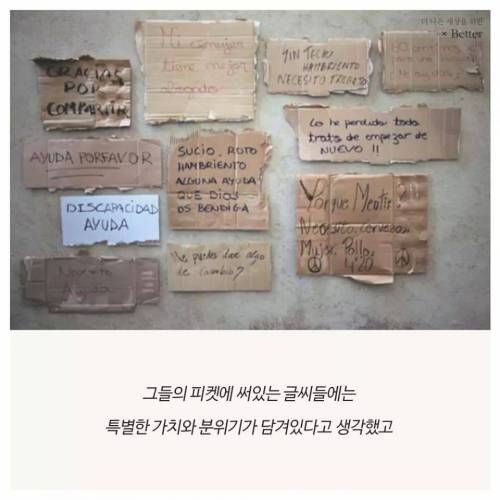 더 나은 세상을 위한
× Better
GRACIAS
POR
COMPARTIR
Mi exmujer
tiene mejor
abogado
SIN TECHO
HAMBRIENTO
NECESITO TRABAJO
AYUDA PORFAVOR
SUCIO, ROTO
HAMBRIENTO
ALGUNA AYUDA
QUE DIOS
OS BENDIGA
Lo he perdido todo
trato de empezar de
NUEVO !!
DISCAPACIDAD
AYUDA
Porque Mentir
Necesito cervezas
Mujer, Pollo,
4:20
Necesito
Ayuda
Me puedes dar algo
de Cambio?
그들의 피켓에 써있는 글씨들에는
특별한 가치와 분위기가 담겨있다고 생각했고